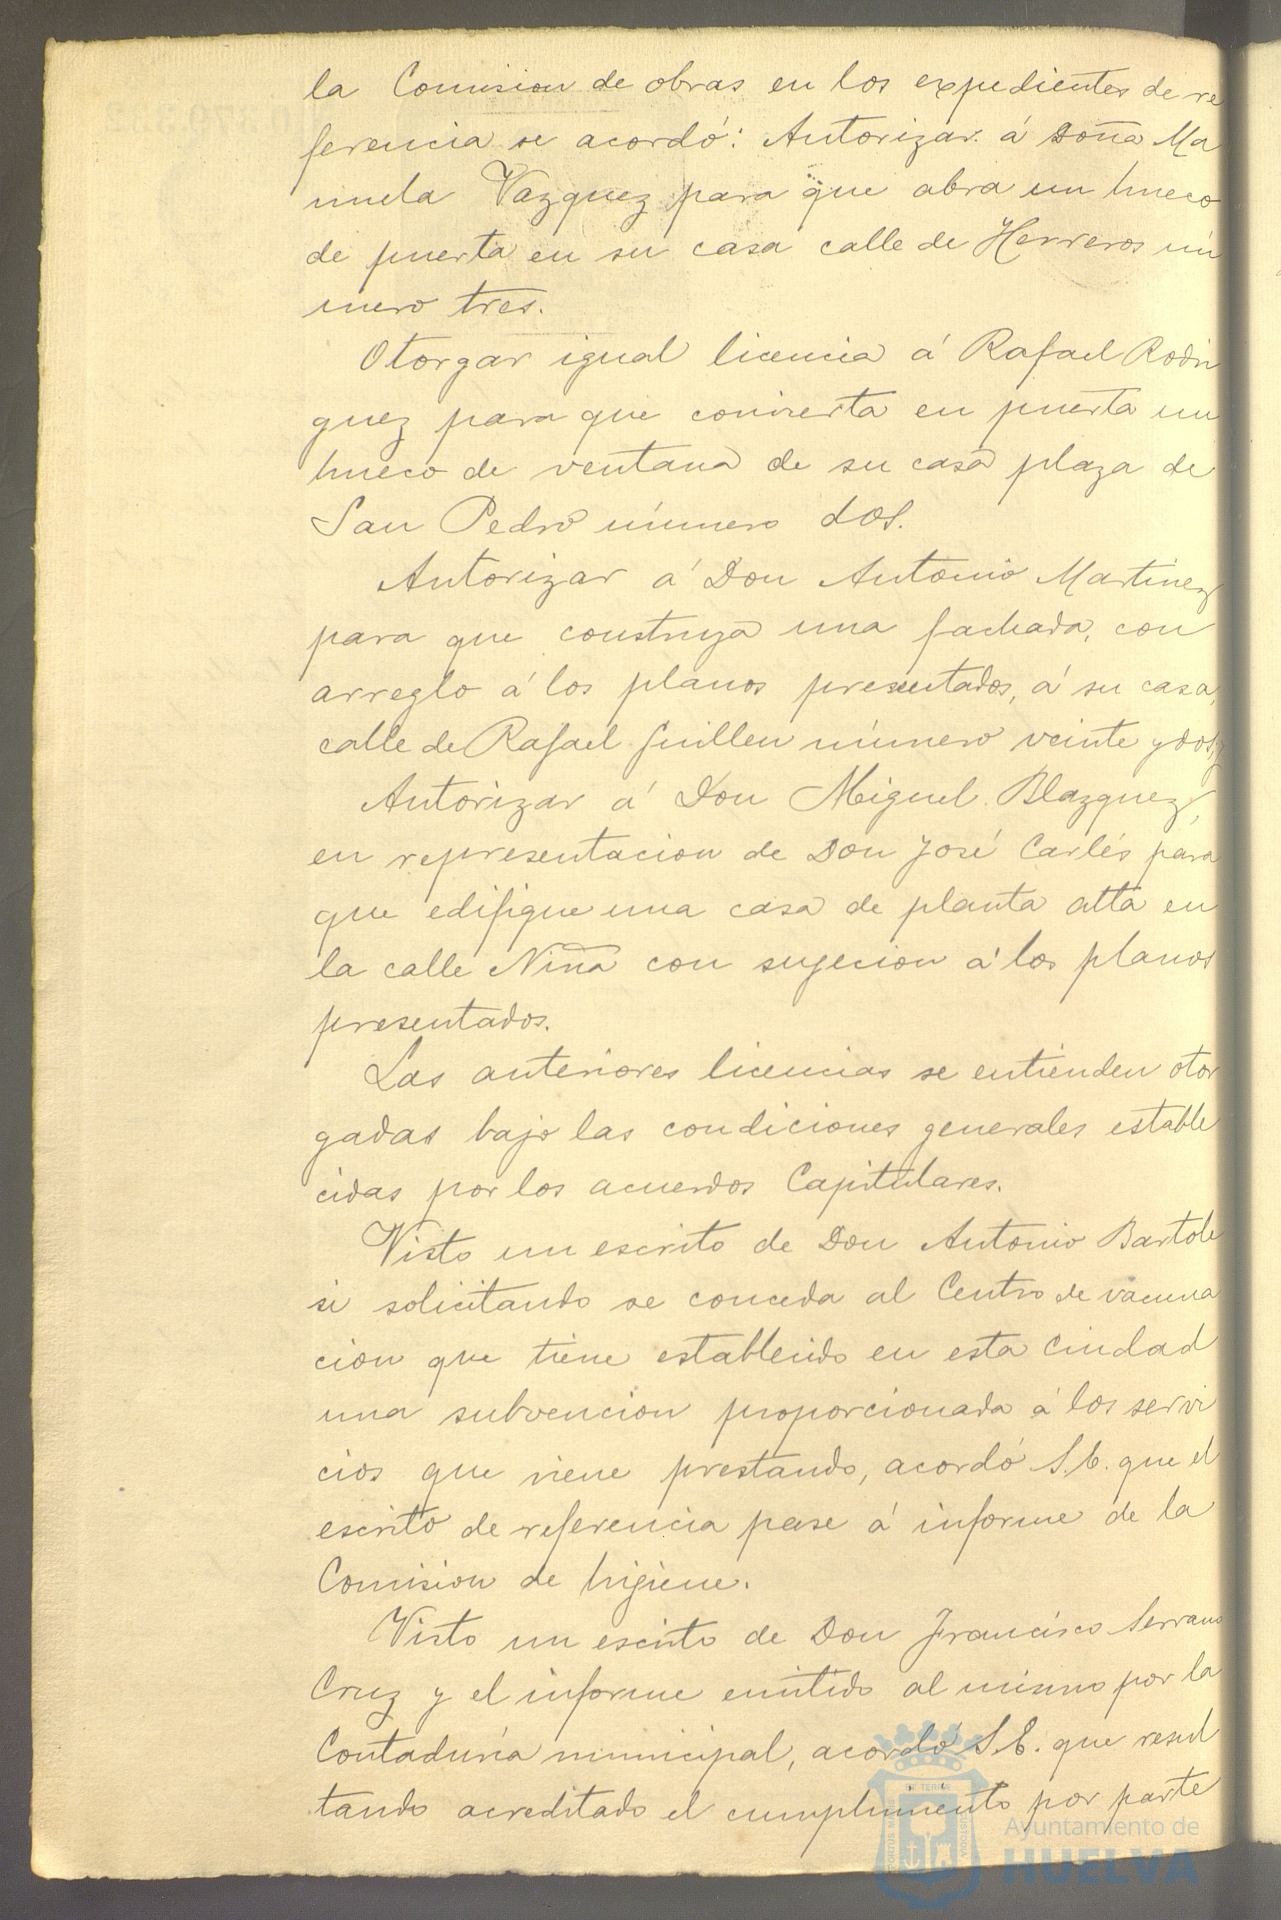 la Comision de obras en los expedientes de re
ferencia se acordó: Autorizar á Doña Ma
nuela Vazquez para que abra un hueco
de puerta en su casa calle de Herreros nú
mero tres.
Otorgar igual licencia á Rafael Rodri
guez para que convierta en puerta un
hueco de ventana de su casa plaza de
San Pedro número dos.
Autorizar á Don Antonio Martinez
para que construya una fachada, con
arreglo á los planos presentados, á su casa,
calle de Rafael Guillen número veinte y dos,
Autorizar á Don Miguel Blazquez,
en representacion de Don José Carlés para
que edifique una casa de planta alta en
la calle Niña con sugecion á los planos
presentados.
Las anteriores licencias se entienden otor
gadas bajo las condiciones generales estable
cidas por los acuerdos Capitulares.
Visto un escrito de Don Antonio Bartole
si solicitando se conceda al Centro de vacuna
cion que tiene establecido en esta Ciudad
una subvencion proporcionada á los servi
cios que viene prestando, acordó S.E. que el
escrito de referencia pase á informe de la
Comision de higiene.
Visto un escrito de Don Francisco Serrano
Cruz y el informe emitido al mismo por la
Contaduria municipal, acordó S.E. que resul
tando acreditado el cumplimento por parte
Ayuntamiento de
HUELVA